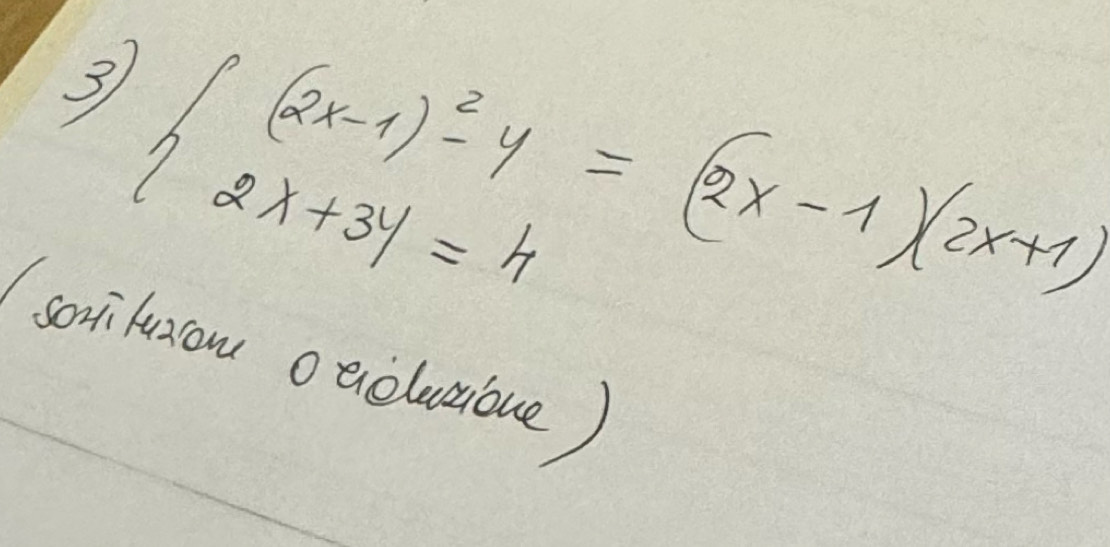 3) { (2x-1)² - y = (2x-1)(2x+1)
2x+3y = 4
(sostituzione o riduzione)